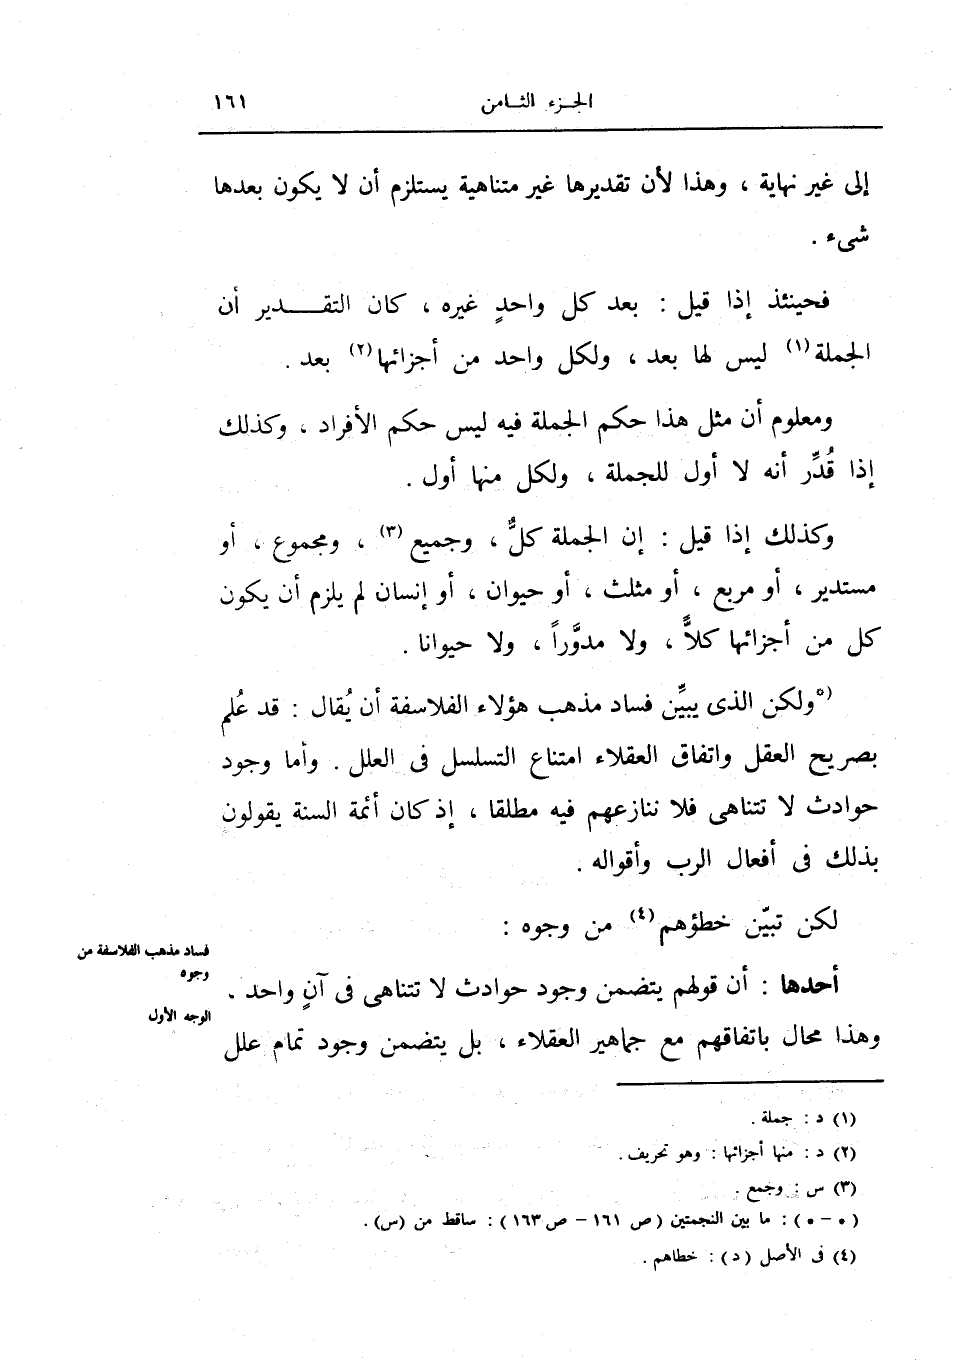 الجزء الثامن ١٦١
إلى غير نهاية ، وهذا لأن تقديرها غير متناهية يستلزم أن لا يكون بعدها
شىء .
فحينئذ إذا قيل : بعد كل واحدٍ غيره ، كان التقـــدير أن
الجملة(١) ليس لها بعد ، ولكل واحد من أجزائها(٢) بعد .
ومعلوم أن مثل هذا حكم الجملة فيه ليس حكم الأفراد ، وكذلك
إذا قُدِّر أنه لا أول للجملة ، ولكل منها أول .
وكذلك إذا قيل : إن الجملة كلٌّ ، وجميع(٣) ، ومجموع ، أو
مستدير ، أو مربع ، أو مثلث ، أو حيوان ، أو إنسان لم يلزم أن يكون
كل من أجزائها كلاًّ ، ولا مدوَّراً ، ولا حيوانا .
(*ولكن الذى يبيِّن فساد مذهب هؤلاء الفلاسفة أن يُقال : قد عُلم
بصريح العقل واتفاق العقلاء امتناع التسلسل فى العلل . وأما وجود
حوادث لا تتناهى فلا ننازعهم فيه مطلقا ، إذ كان أئمة السنة يقولون
بذلك فى أفعال الرب وأقواله .
لكن تبيّن خطؤهم(٤) من وجوه :
فساد مذهب الفلاسفة من
وجوه
أحدها : أن قولهم يتضمن وجود حوادث لا تتناهى فى آنٍ واحد .
الوجه الأول
وهذا محال باتفاقهم مع جماهير العقلاء ، بل يتضمن وجود تمام علل
(١) د : جملة .
(٢) د : منها أجزائها : وهو تحريف .
(٣) س : وجمع .
(* – *) : ما بين النجمتين (ص ١٦١ – ص ١٦٣) : ساقط من (س) .
(٤) فى الأصل (د) : خطاهم .